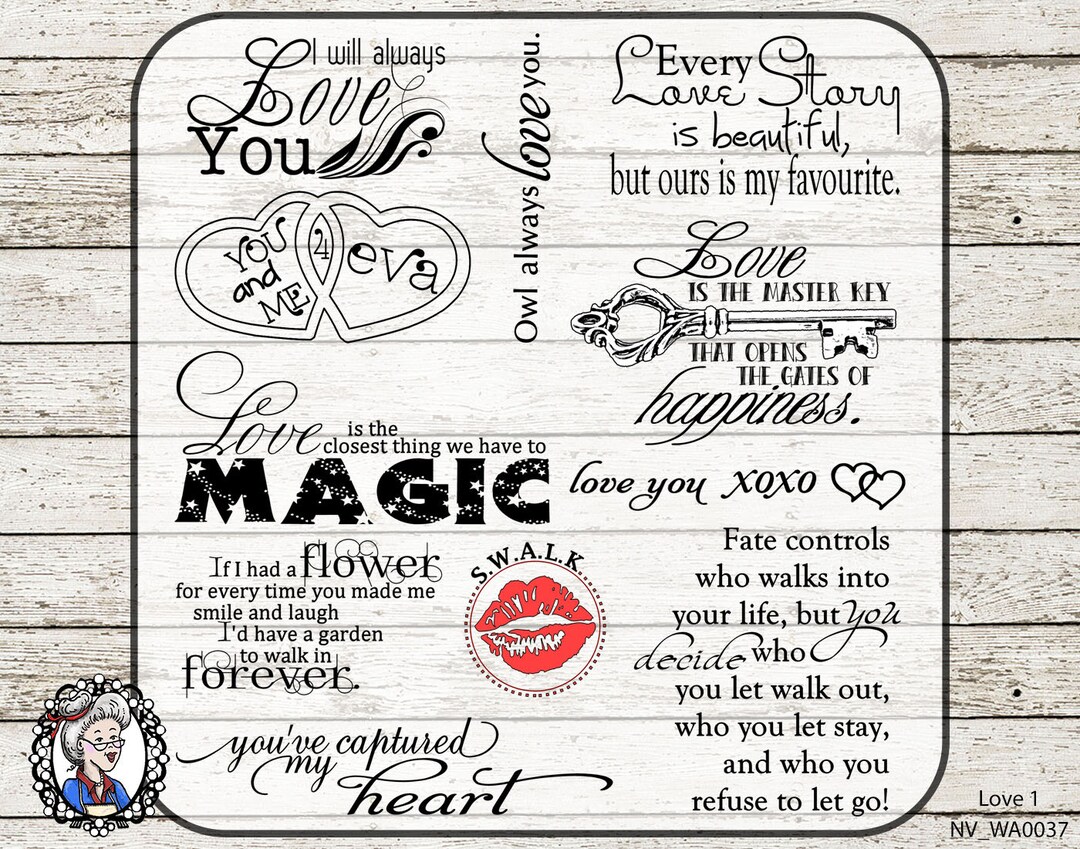 I will always
Love
You
Owl always love you.
Every
Love Story
is beautiful,
but ours is my favourite.
YOU
and
ME
4
eva
Love
IS THE MASTER KEY
THAT OPENS
THE GATES OF
happiness.
Love is the
closest thing we have to
MAGIC
love you xoxo
If I had a flower
for every time you made me
smile and laugh
I'd have a garden
to walk in
forever.
S.W.A.L.K.
Fate controls
who walks into
your life, but you
decide who
you let walk out,
who you let stay,
and who you
refuse to let go!
you've captured
my
heart
Love 1
NV_WA0037